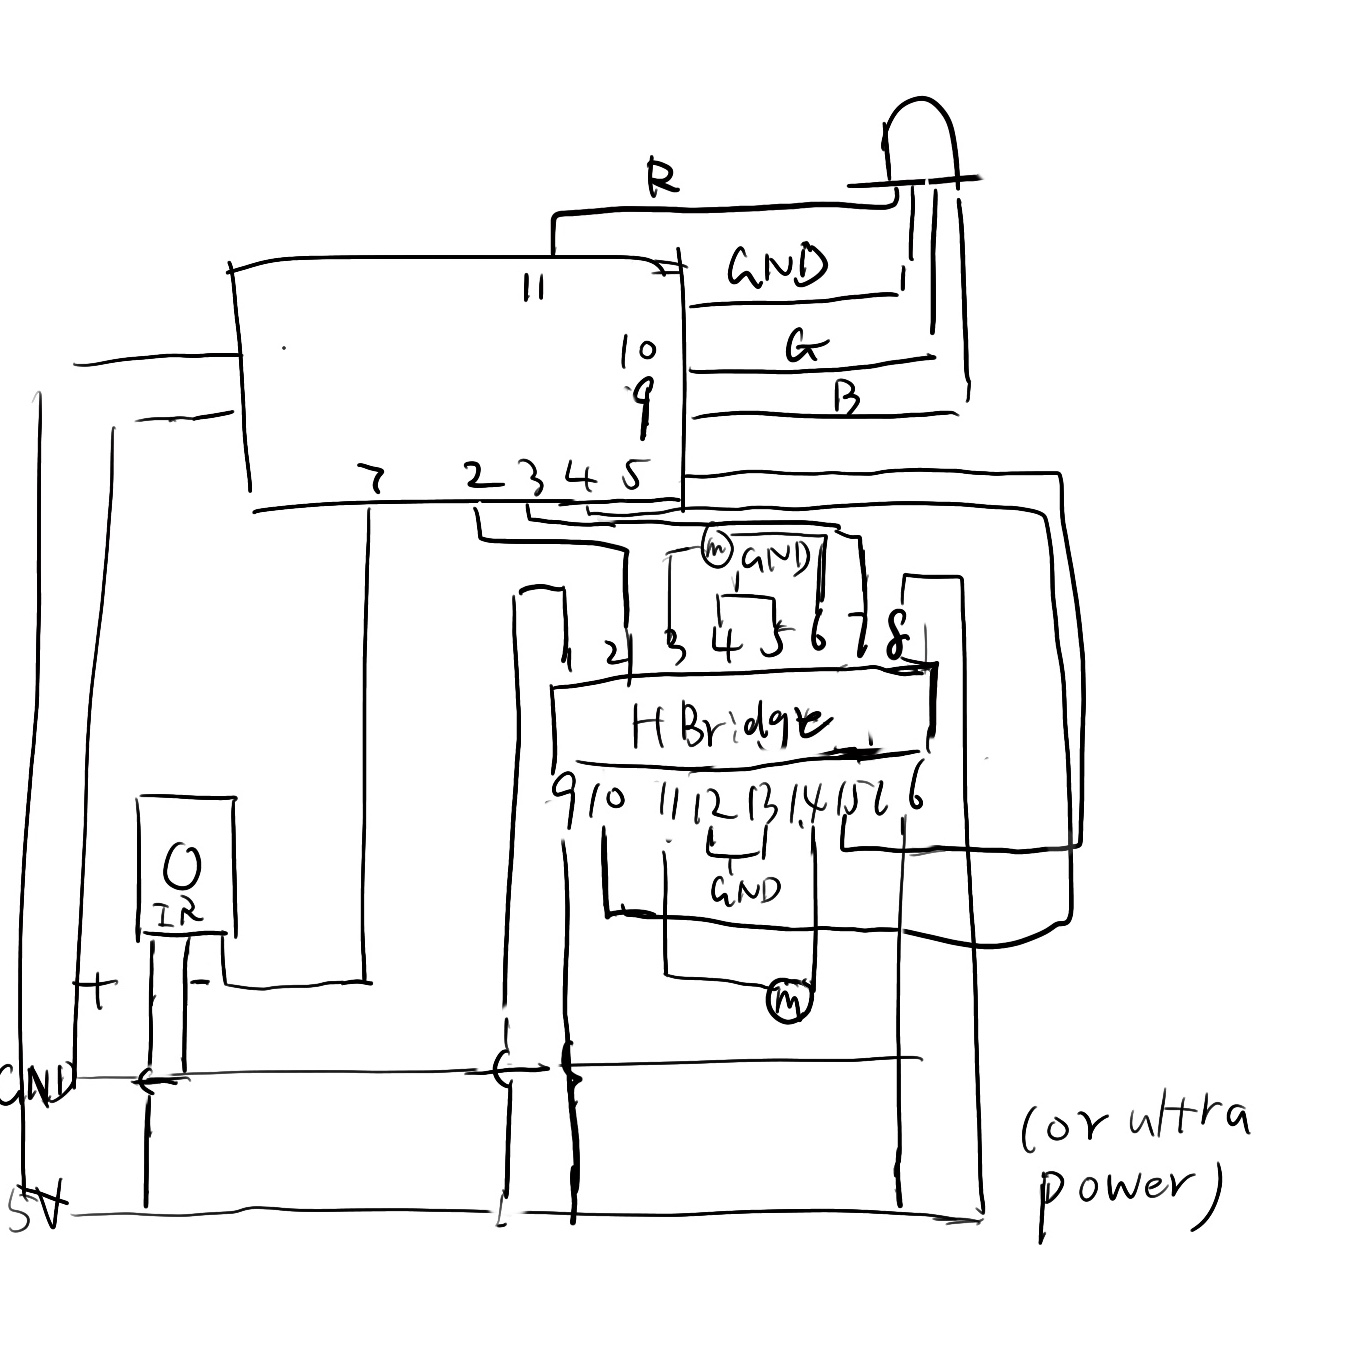 R
GND
11
10
G
9
B
7 2 3 4 5
m GND
1 2 3 4 5 6 7 8
H Bridge
9 10 11 12 13 14 15 16
GND
IR
+ -
m
GND
5V
(or ultra
power)